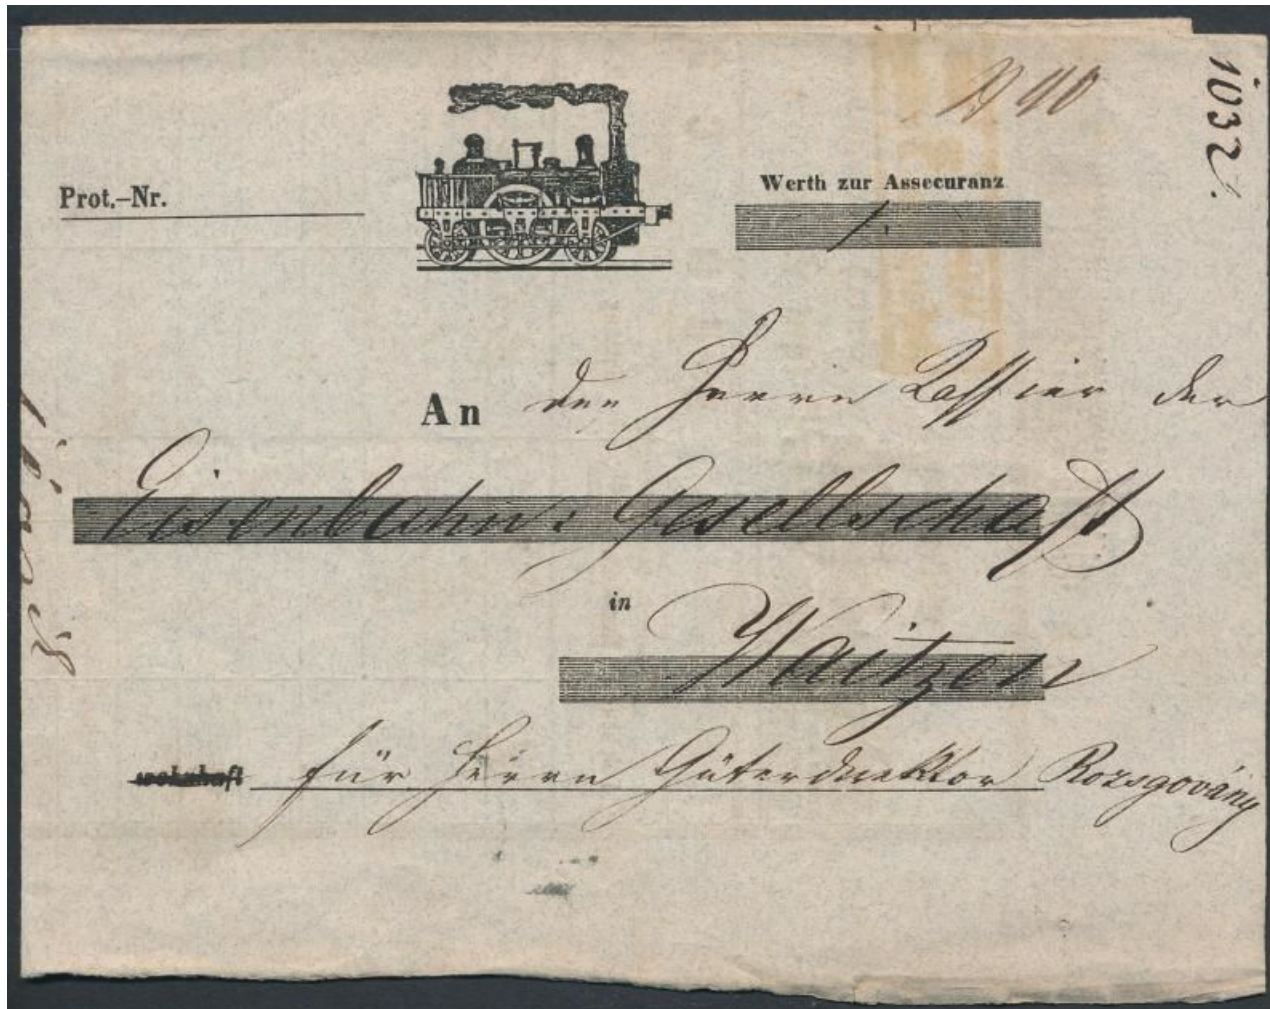 1032.
40
Prot.–Nr.
Werth zur Assecuranz
An den Herrn Cassier der
Eisenbahn: Gesellschaft
in
Waitzen
wohnhaft für Herrn Güterdirektor Rozsgovány